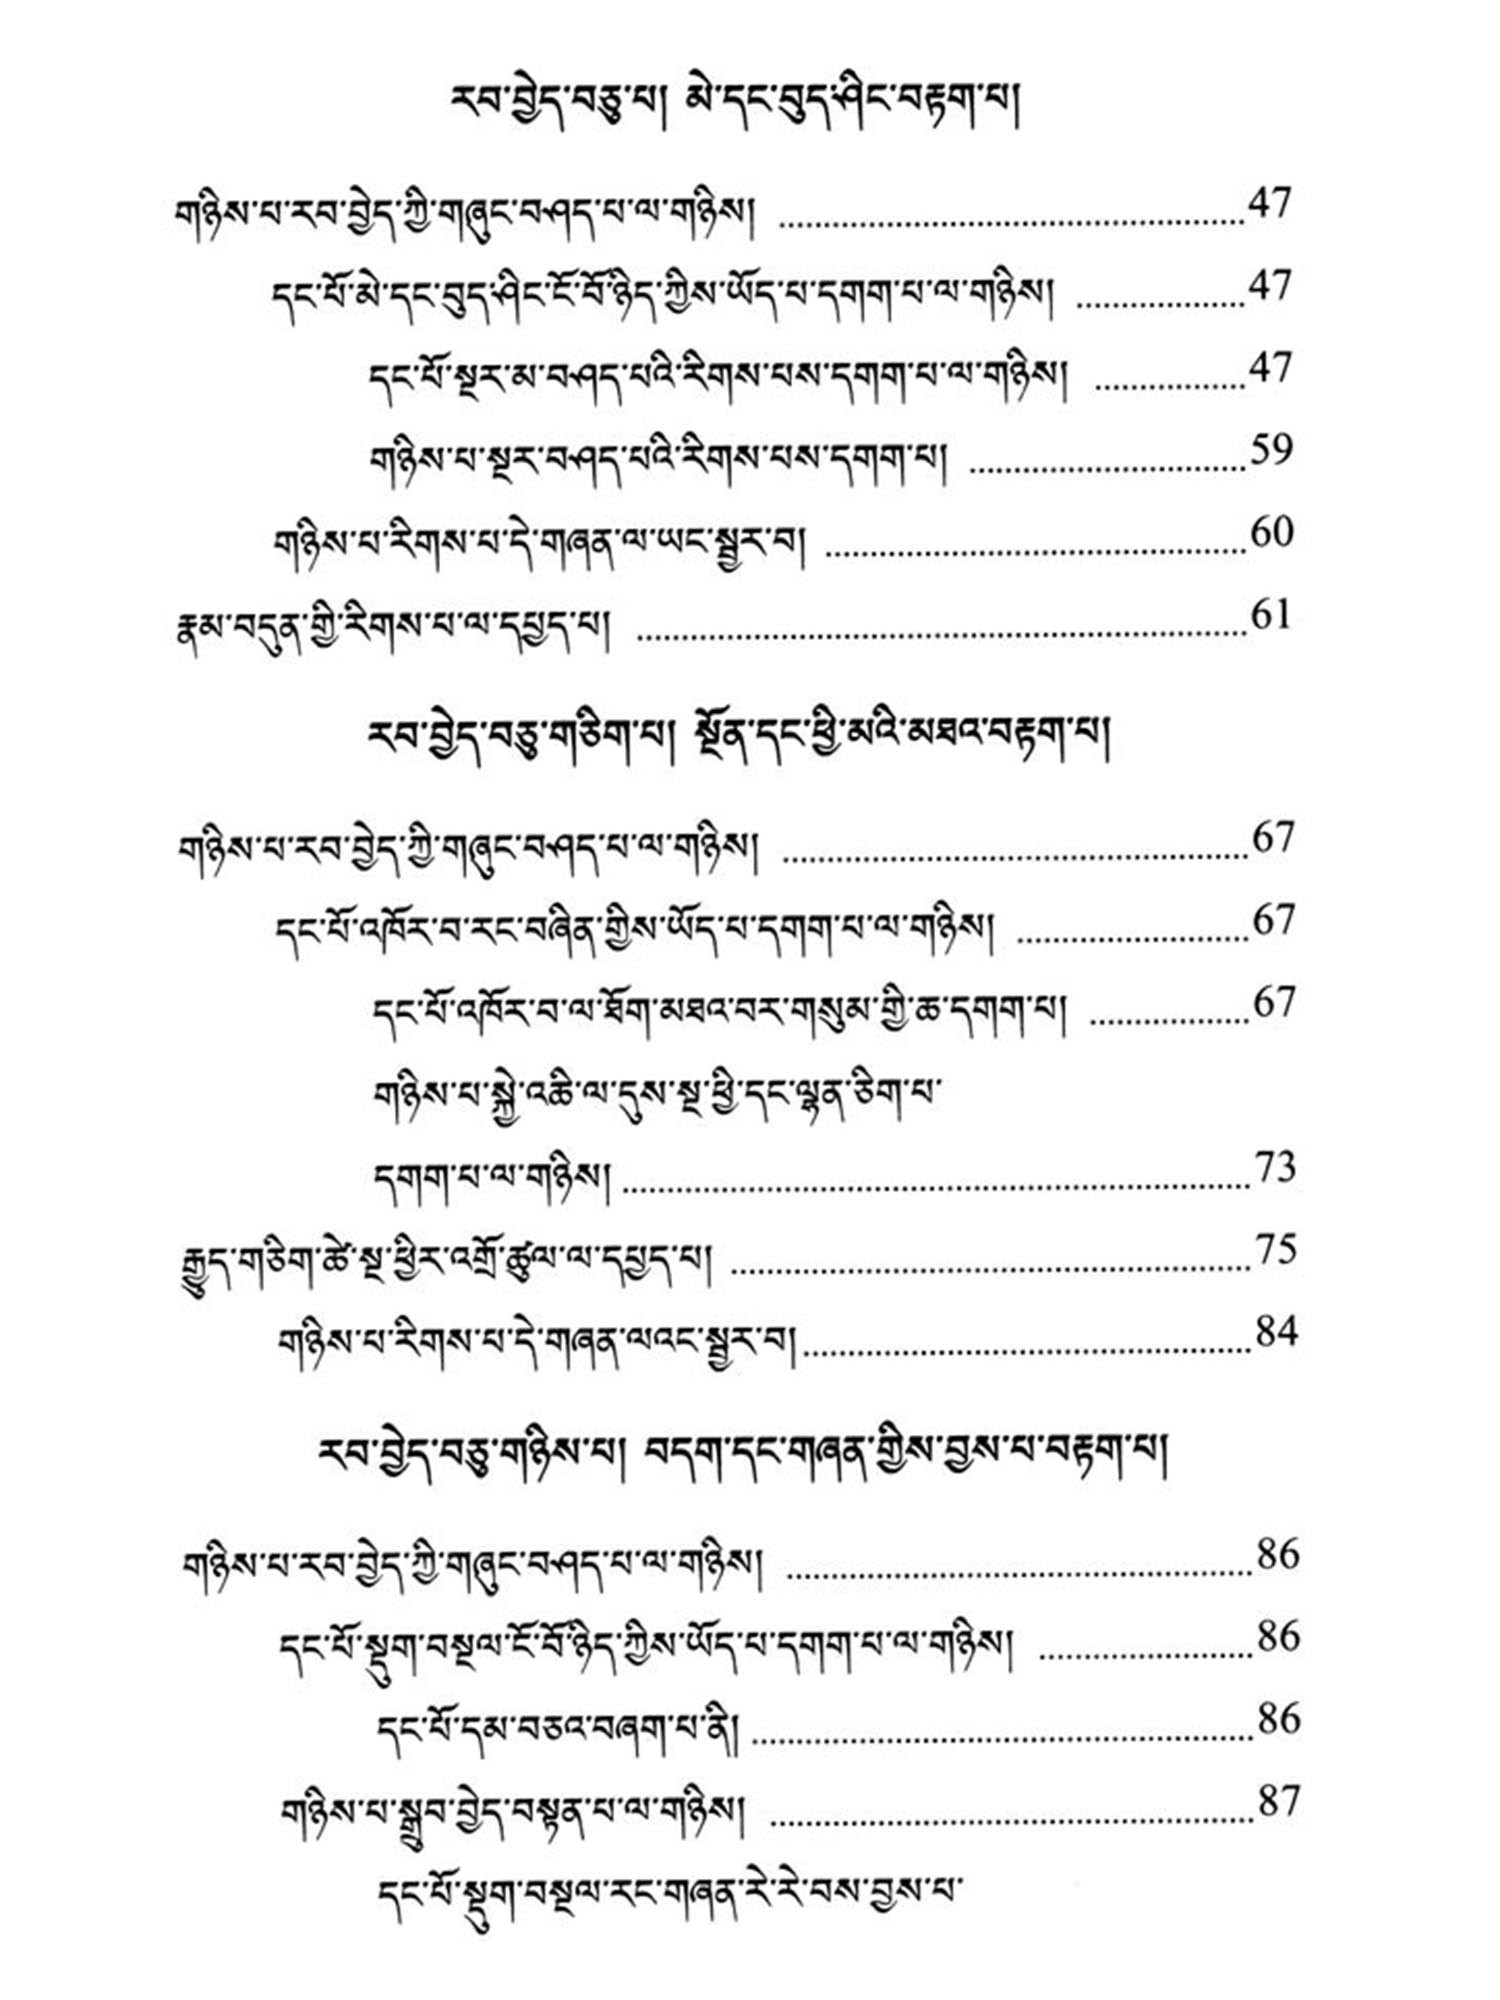 རབ་བྱེད་བཅུ་པ། མེ་དང་བུད་ཤིང་བརྟག་པ།
གཉིས་པ་རབ་བྱེད་ཀྱི་གཞུང་བཤད་པ་ལ་གཉིས། ........................................ 47
དང་པོ་མེ་དང་བུད་ཤིང་ངོ་བོ་ཉིད་ཀྱིས་ཡོད་པ་དགག་པ་ལ་གཉིས། ............... 47
དང་པོ་སྔར་མ་བཤད་པའི་རིགས་པས་དགག་པ་ལ་གཉིས། ............. 47
གཉིས་པ་སྔར་བཤད་པའི་རིགས་པས་དགག་པ། ........................ 59
གཉིས་པ་རིགས་པ་དེ་གཞན་ལ་ཡང་སྦྱར་བ། .................................... 60
རྣམ་བདུན་གྱི་རིགས་པ་ལ་དཔྱད་པ། .................................................... 61
རབ་བྱེད་བཅུ་གཅིག་པ། སྔོན་དང་ཕྱི་མའི་མཐའ་བརྟག་པ།
གཉིས་པ་རབ་བྱེད་ཀྱི་གཞུང་བཤད་པ་ལ་གཉིས། ........................................ 67
དང་པོ་འཁོར་བ་རང་བཞིན་གྱིས་ཡོད་པ་དགག་པ་ལ་གཉིས། .................... 67
དང་པོ་འཁོར་བ་ལ་ཐོག་མཐའ་བར་གསུམ་གྱི་ཆ་དགག་པ། .............. 67
གཉིས་པ་སྐྱེ་འཆི་ལ་དུས་སྔ་ཕྱི་དང་ལྷན་ཅིག་པ་
དགག་པ་ལ་གཉིས། ...................................................... 73
རྒྱུད་གཅིག་ཚེ་སྔ་ཕྱིར་འགྲོ་ཚུལ་ལ་དཔྱད་པ། ............................................ 75
གཉིས་པ་རིགས་པ་དེ་གཞན་ལའང་སྦྱར་བ། ...................................... 84
རབ་བྱེད་བཅུ་གཉིས་པ། བདག་དང་གཞན་གྱིས་བྱས་པ་བརྟག་པ།
གཉིས་པ་རབ་བྱེད་ཀྱི་གཞུང་བཤད་པ་ལ་གཉིས། ........................................ 86
དང་པོ་སྡུག་བསྔལ་ངོ་བོ་ཉིད་ཀྱིས་ཡོད་པ་དགག་པ་ལ་གཉིས། .................. 86
དང་པོ་དམ་བཅའ་བཞག་པ་ནི། ........................................... 86
གཉིས་པ་སྒྲུབ་བྱེད་བསྟན་པ་ལ་གཉིས། ......................................... 87
དང་པོ་སྡུག་བསྔལ་རང་གཞན་རེ་རེ་བས་བྱས་པ་